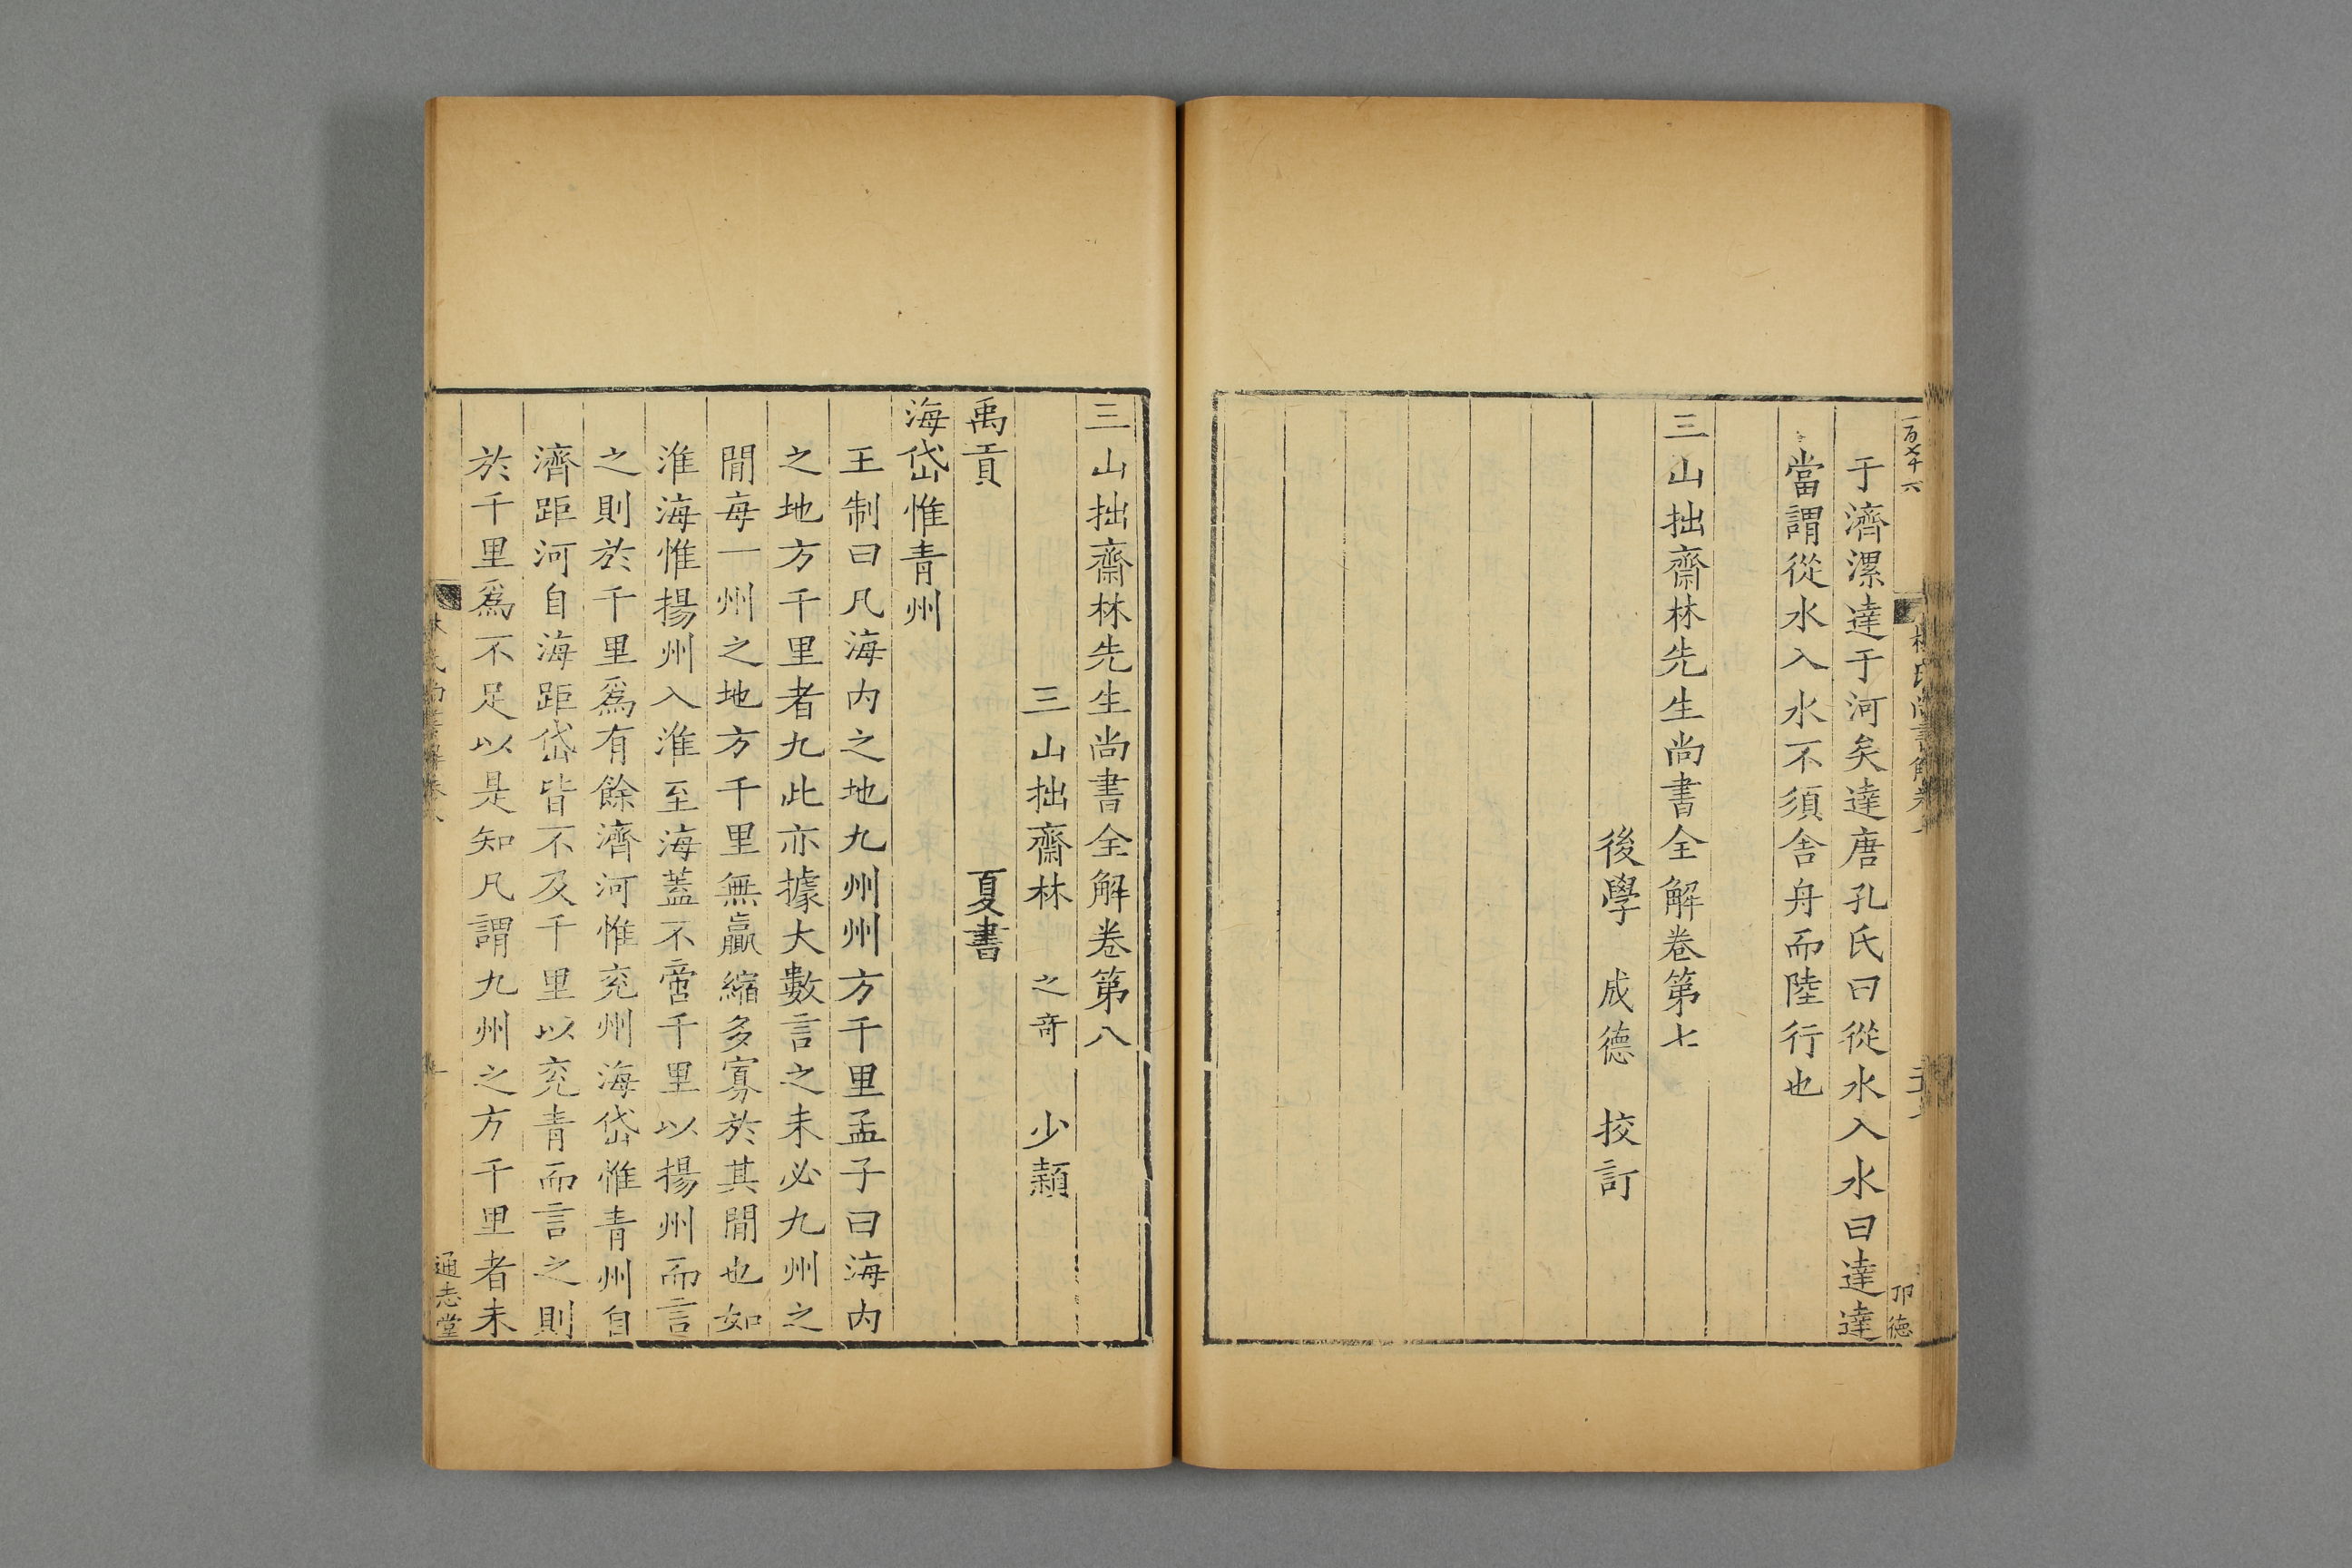 一百七十六
于濟漯達于河矣達唐孔氏曰從水入水曰達達
當謂從水入水不須舍舟而陸行也
三山拙齋林先生尚書全解卷第七
後學 成德 挍訂
三山拙齋林先生尚書全解卷第八
三山拙齋林 之奇 少穎
禹貢 夏書
海岱惟青州
王制曰凡海內之地九州州方千里孟子曰海內
之地方千里者九此亦據大數言之未必九州之
閒每一州之地方千里無贏縮多寡於其閒也如
淮海惟揚州入淮至海蓋不啻千里以揚州而言
之則於千里爲有餘濟河惟兖州海岱惟青州自
濟距河自海距岱皆不及千里以兖青而言之則
於千里爲不足以是知凡謂九州之方千里者未
林氏尚書解卷八 一 通志堂